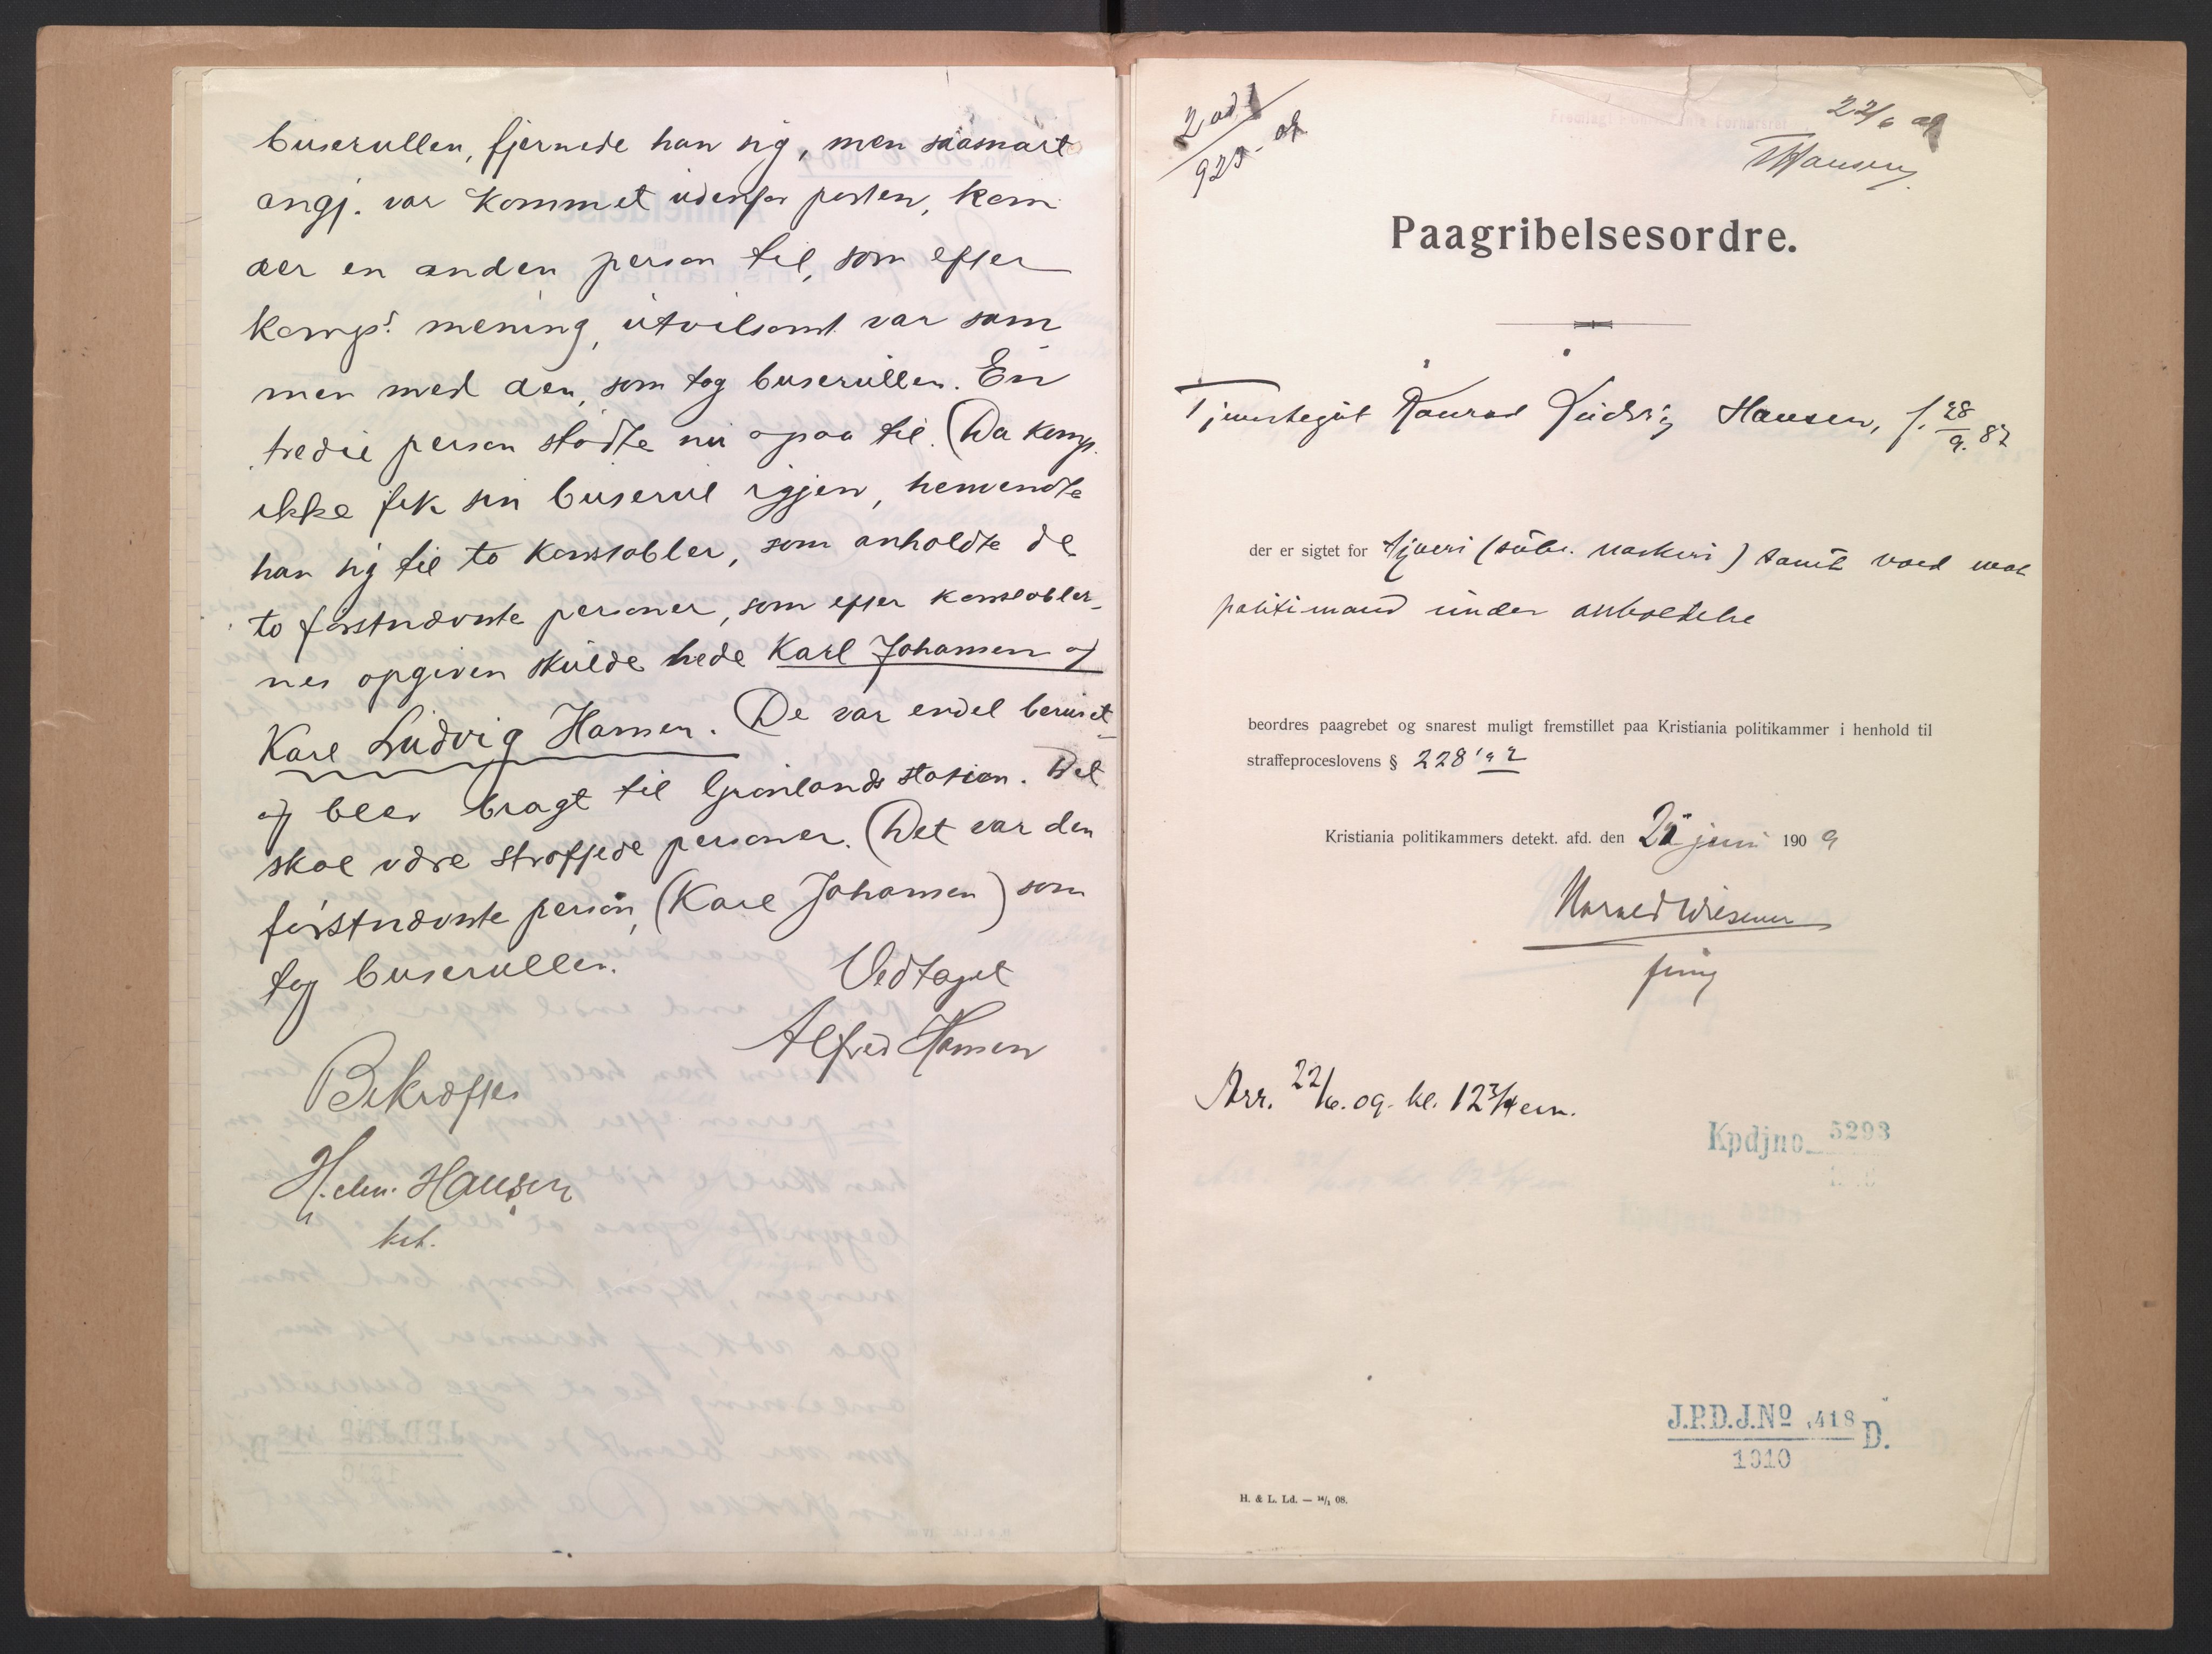 buserullen, fjernede han sig, men saasnart
angj. var kommet udenfor porten, kom
der en anden person til, som efter
komps. mening, utvilsomt var sam
men med den, som tog buserullen. En
tredie person stødte nu ogsaa til. (Da komp.
ikke fik sin buserul igjen, henvendte
han sig til to konstabler, som anholdte de
to førstnævnte personer, som efter konstabler-
nes opgiven skulde hede Karl Johansen og
Karl Ludvig Hansen. De var endel beruset
og blev bragt til Grønlands station. Det
skal være straffede personer. (Det var den
førstnævnte person, (Karl Johansen) som
tog buserullen.
Vedtaget
Alfred Hansen
Bekræftes
H. Chr. Hansen
kst.
2 ad 1
925 - 09
22/6 09
Hansen
Paagribelsesordre.
Tjenestegut Konrad Ludvig Hansen, f. 28/9. 87
der er sigtet for tyveri (subs. naskeri) samt vold mot
politimand under anholdelse
beordres paagrebet og snarest muligt fremstillet paa Kristiania politikammer i henhold til
straffeproceslovens § 228 1 og 2
Kristiania politikammers detekt. afd. den 22 juni 1909
Harald Wiesener
fmg
Arr. 22/6. 09. kl. 12 3/4 em.
Kpdjno. 5293
J.P.D.J.No 418 D.
1910
H. & L. Ld. — 14/1 08.